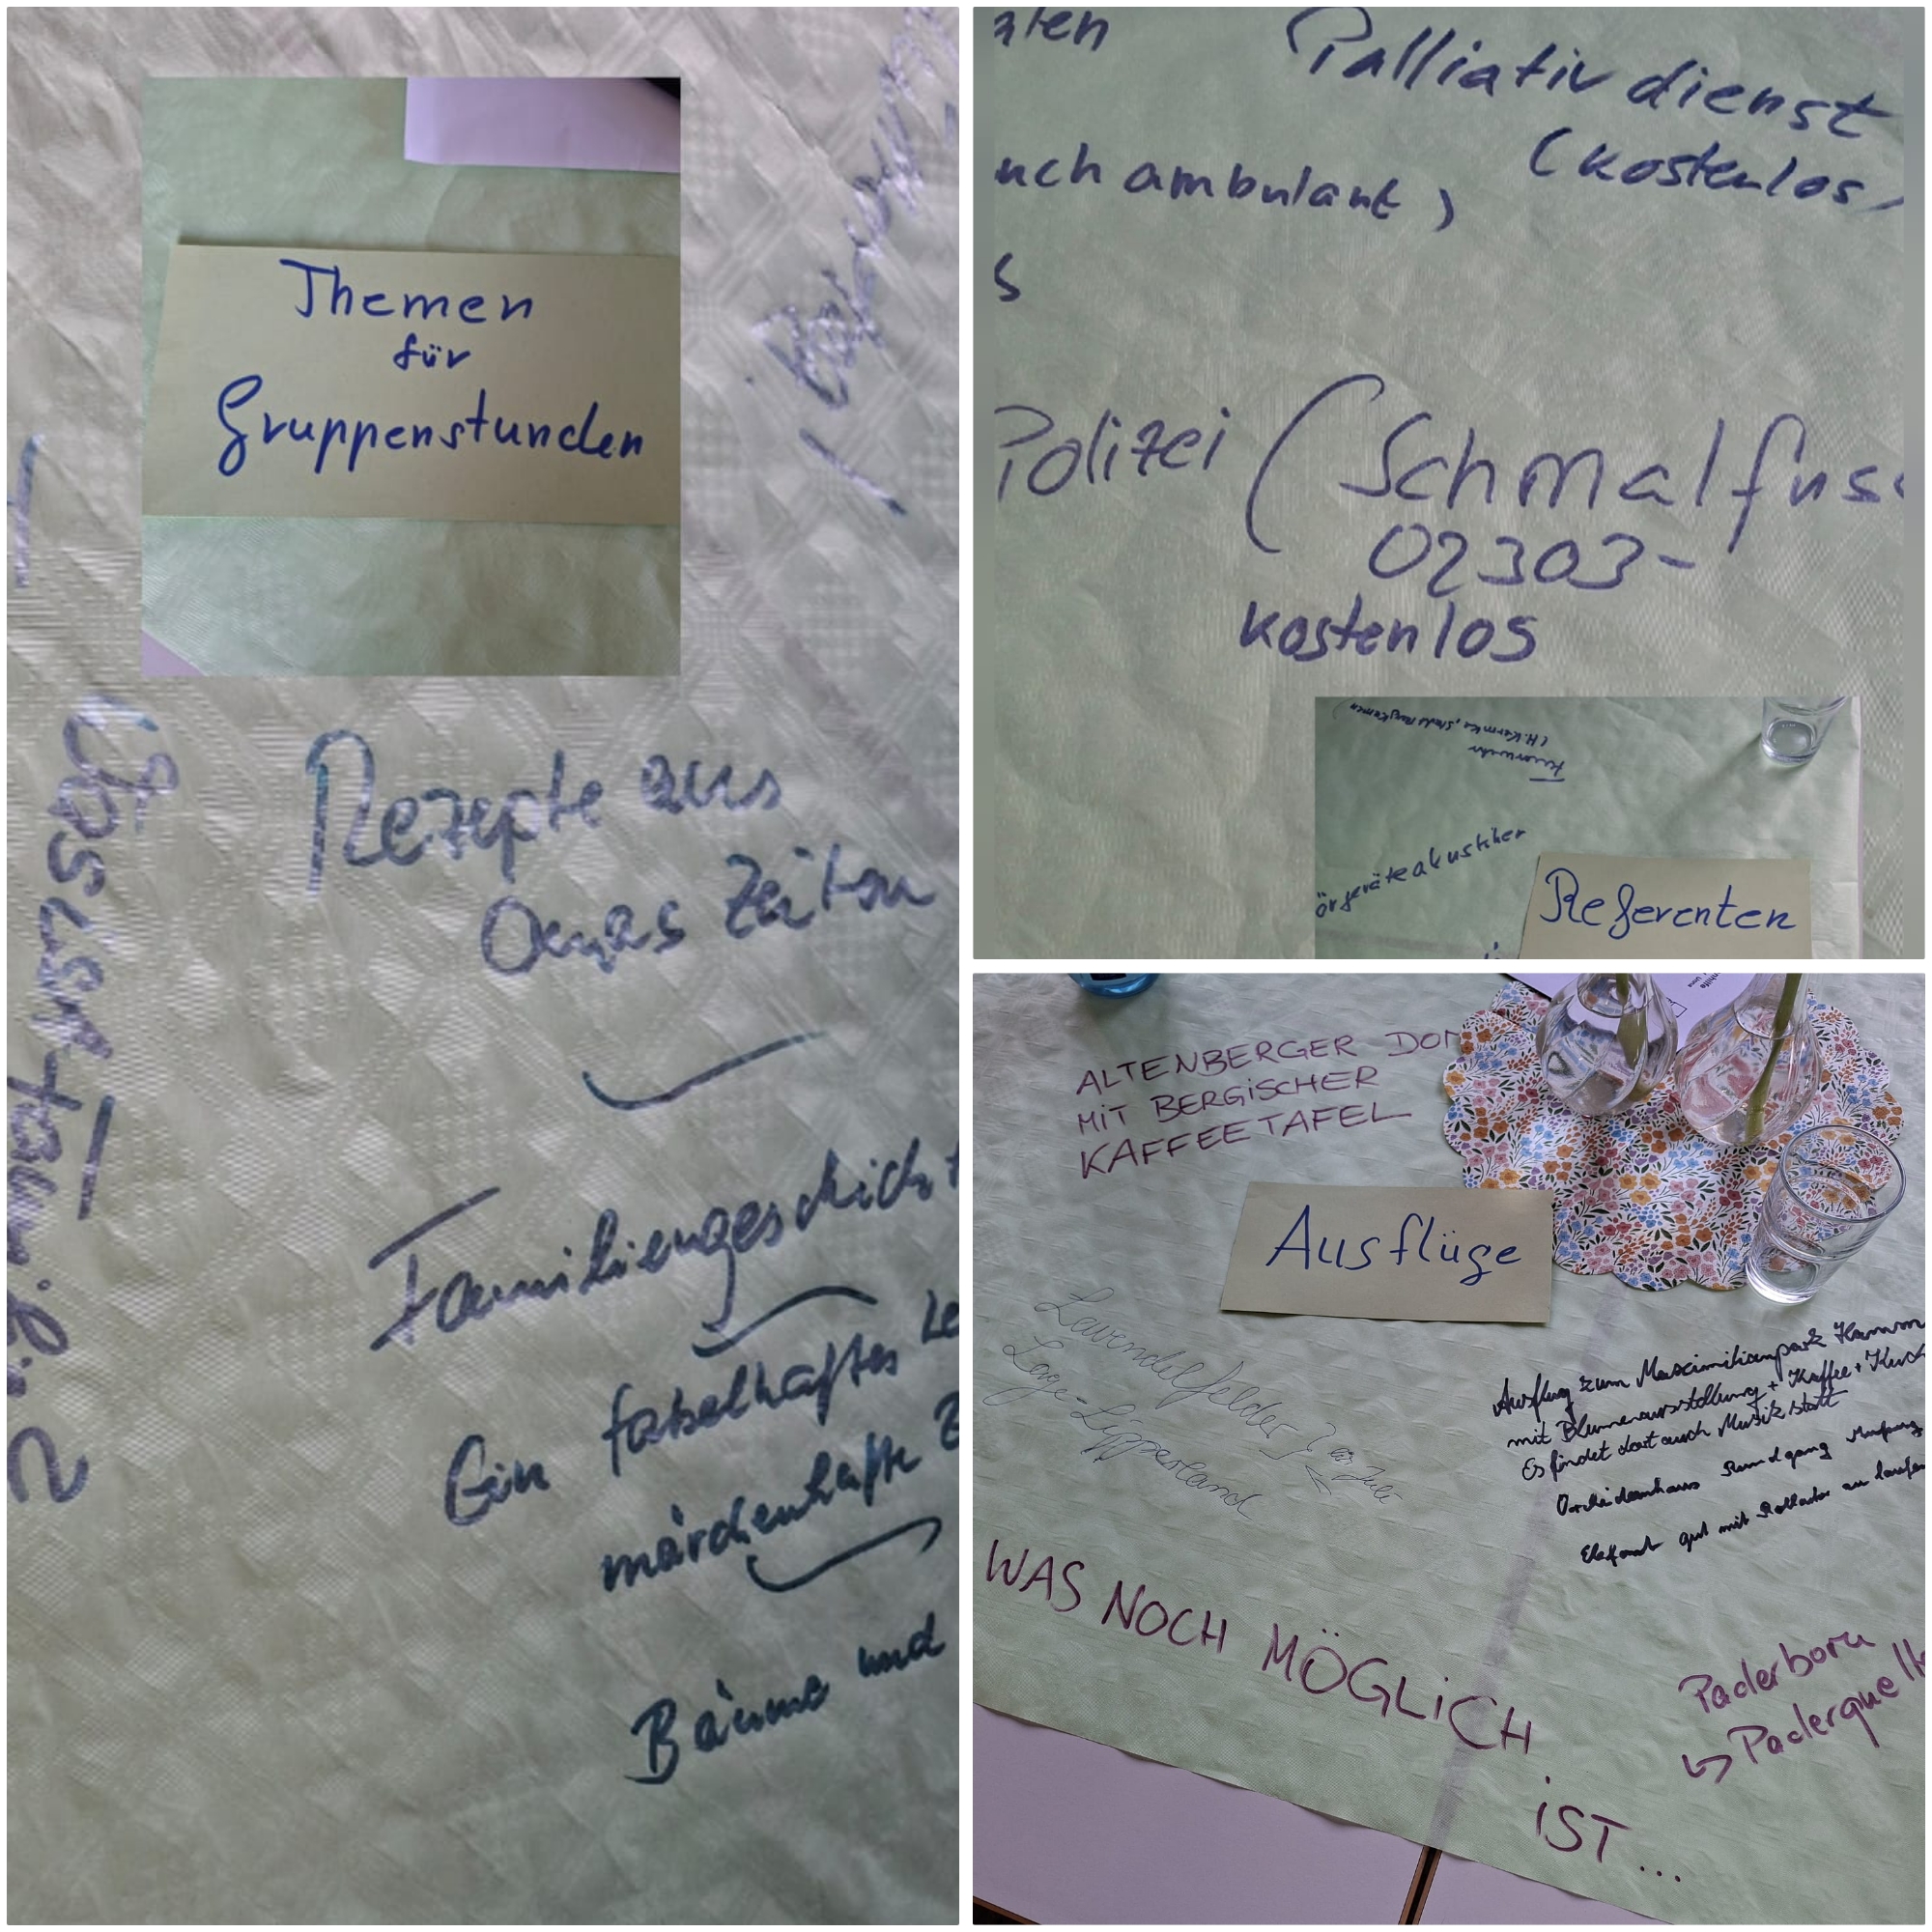 Themen
für
Gruppenstunden
Rezepte aus
Omas Zeiten
Familiengeschicht
Ein fabelhaftes Le
märchenhafte B
Bäume und
Palliativdienst
(kostenlos,
uch ambulant)
s
Polizei (Schmalfuss
02303-
kostenlos
Feuerwehr
örgeräteakustiker
Referenten
ALTENBERGER DOM
MIT BERGISCHER
KAFFEETAFEL
Ausflüge
Lavendelfelder
Lage-Lipperland
Ausflug zum Maximilianpark Hamm
mit Blumenausstellung + Kaffee + Kuch
Es findet dort auch Musik statt
Orchideenhaus Rundgang
Elefant gut mit Rollator zu laufen
WAS NOCH MÖGLICH
IST...
Paderborn
↳ Paderquell